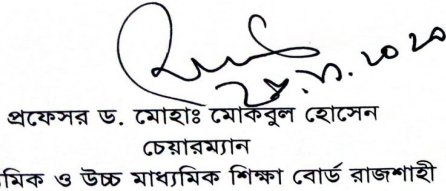 প্রফেসর ড. মোহাঃ মোকবুল হোসেন
চেয়ারম্যান
মিক ও উচ্চ মাধ্যমিক শিক্ষা বোর্ড রাজশাহী